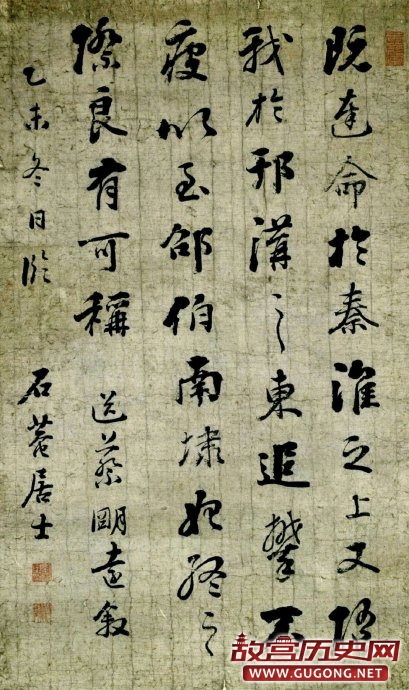 既達命於秦淮之上又隨
我於邗溝之東追攀不
疲以至邵伯南埭始終之
際良有可稱 送蔡明遠敘
乙未冬日臨 石菴居士
故宫历史网
WWW.GUGONG.NET